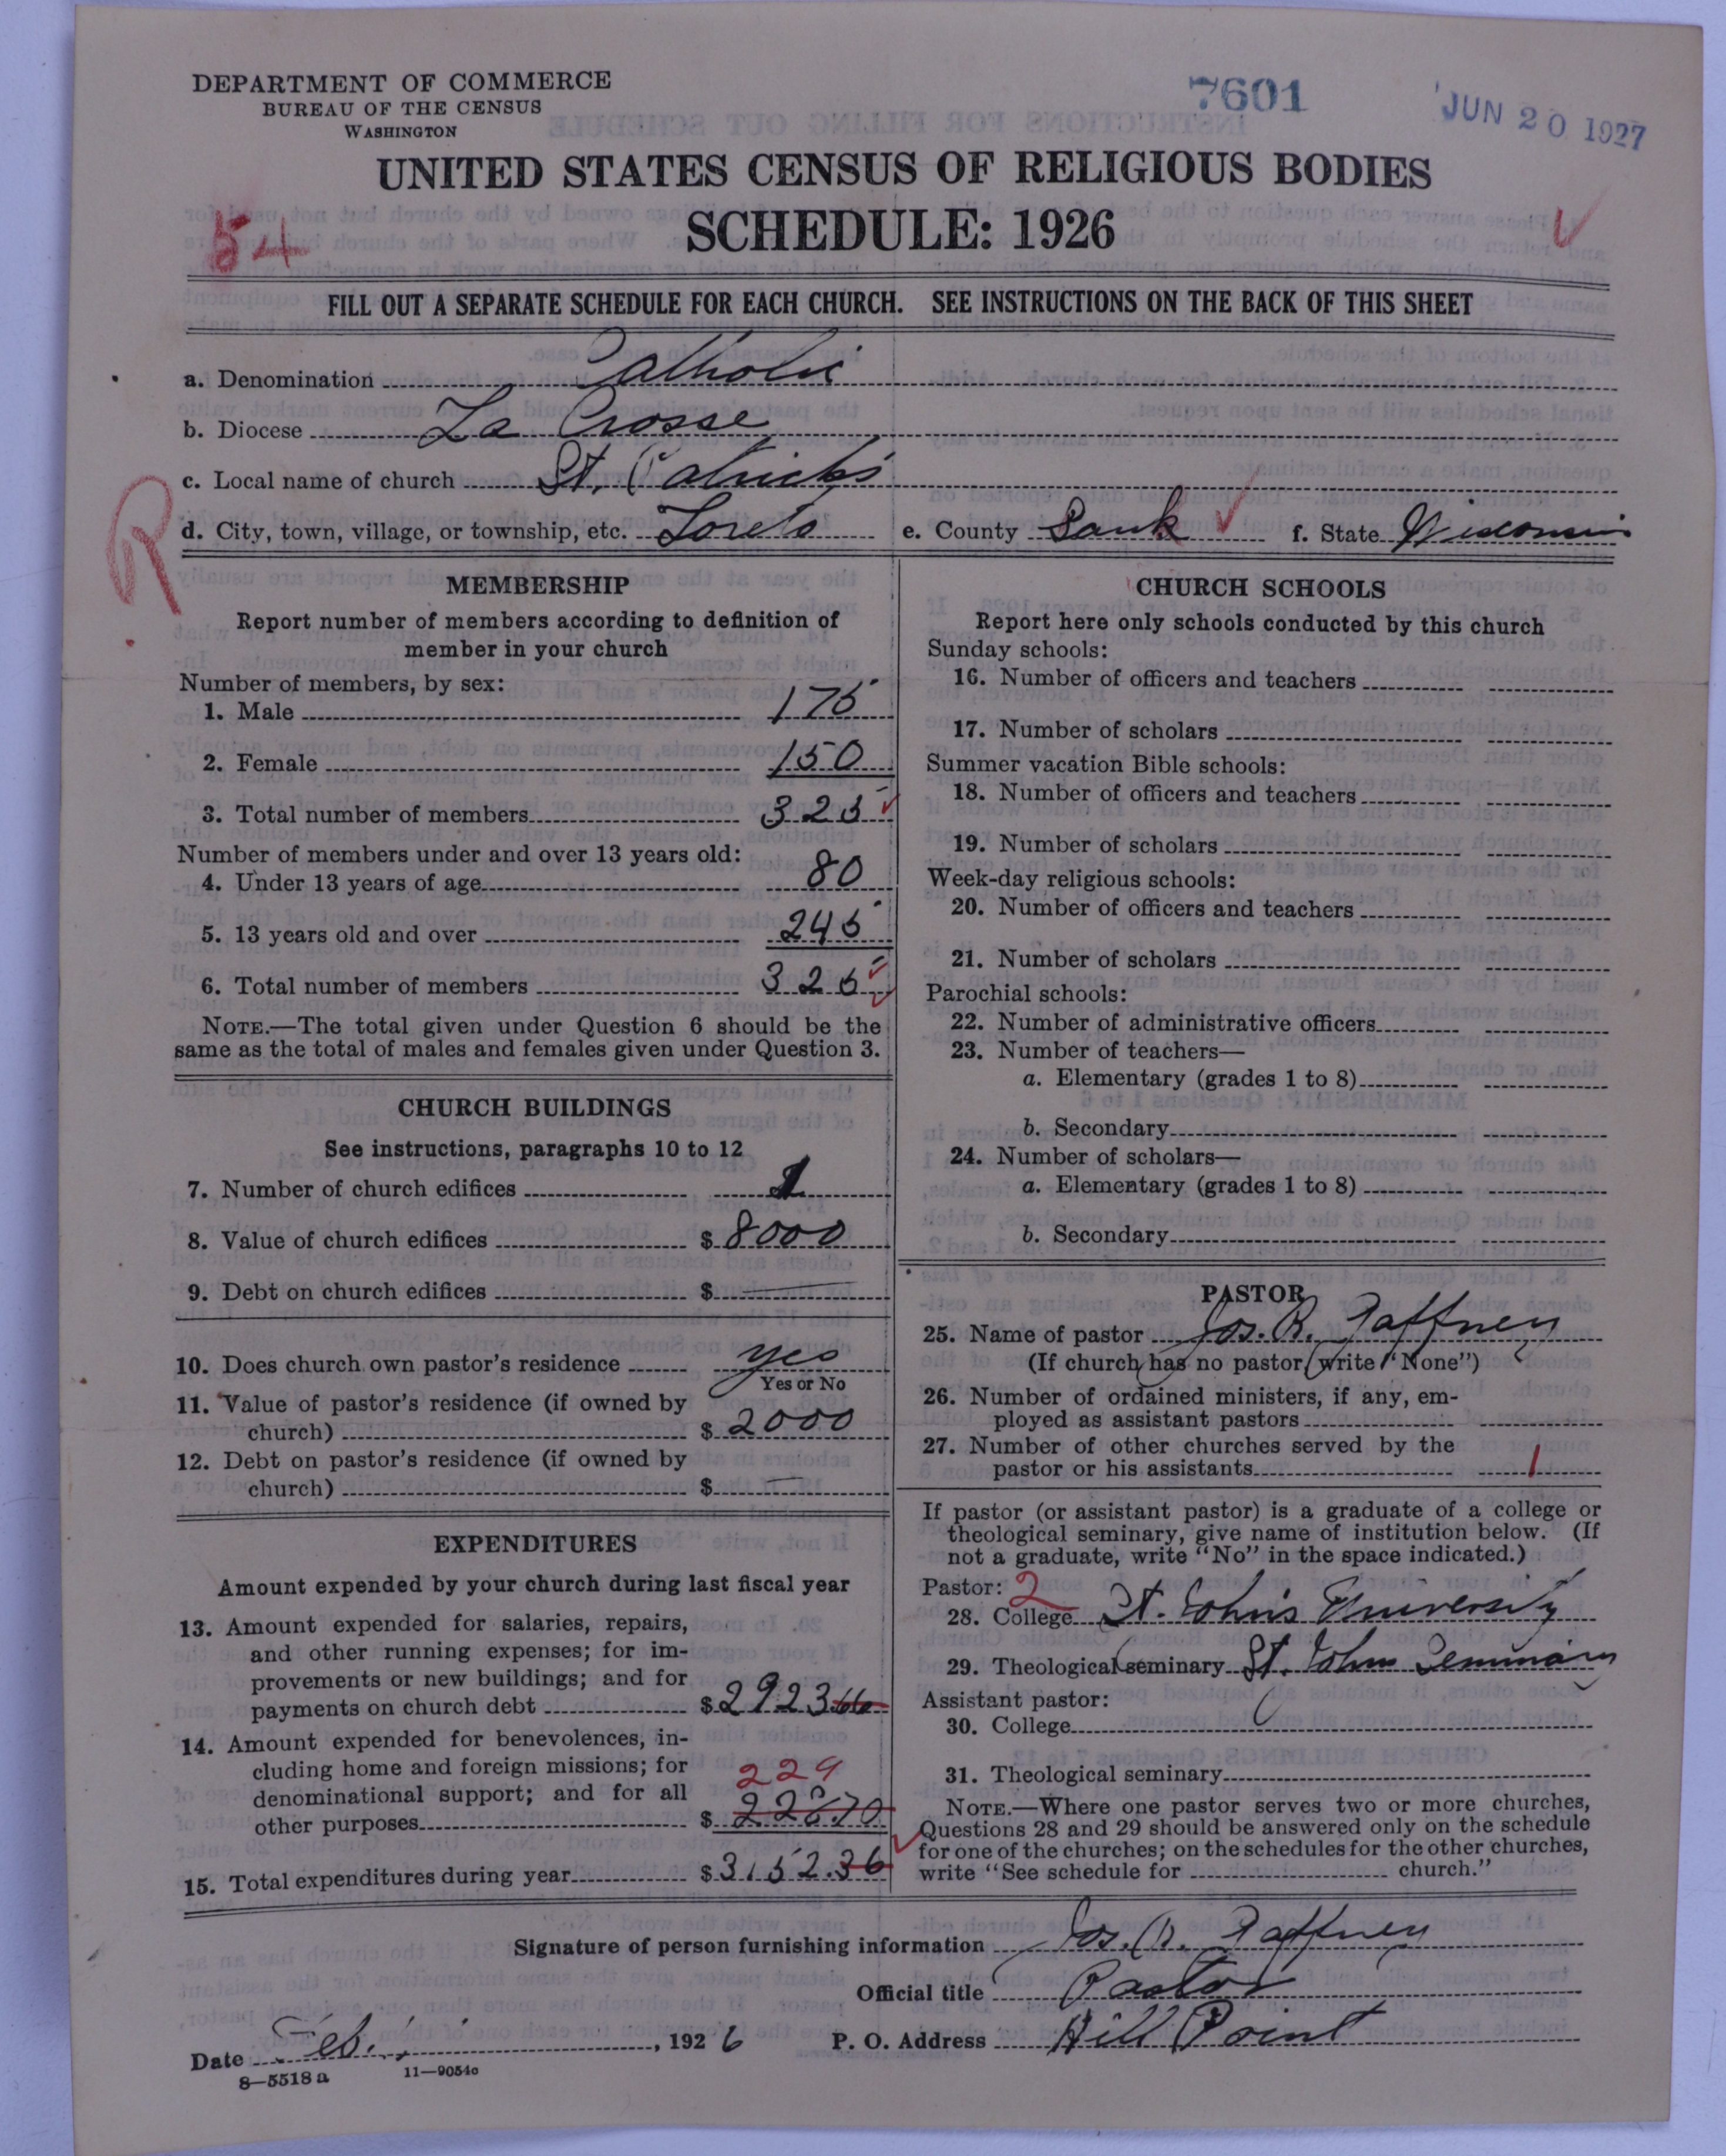 DEPARTMENT OF COMMERCE
BUREAU OF THE CENSUS
WASHINGTON
7601
JUN 20 1927
UNITED STATES CENSUS OF RELIGIOUS BODIES
54
SCHEDULE: 1926
FILL OUT A SEPARATE SCHEDULE FOR EACH CHURCH. SEE INSTRUCTIONS ON THE BACK OF THIS SHEET
a. Denomination Catholic
b. Diocese La Crosse
c. Local name of church St. Patrick's
d. City, town, village, or township, etc. Loreto e. County Sauk f. State Wisconsin
R
MEMBERSHIP
Report number of members according to definition of
member in your church
Number of members, by sex:
1. Male 175
2. Female 150
3. Total number of members 325
Number of members under and over 13 years old:
4. Under 13 years of age 80
5. 13 years old and over 245
6. Total number of members 325
NOTE.—The total given under Question 6 should be the
same as the total of males and females given under Question 3.
CHURCH BUILDINGS
See instructions, paragraphs 10 to 12
7. Number of church edifices 1
8. Value of church edifices $ 8000
9. Debt on church edifices $ —
10. Does church own pastor's residence yes
Yes or No
11. Value of pastor's residence (if owned by
church) $ 2000
12. Debt on pastor's residence (if owned by
church) $ —
EXPENDITURES
Amount expended by your church during last fiscal year
13. Amount expended for salaries, repairs,
and other running expenses; for im-
provements or new buildings; and for
payments on church debt $ 2923 66
14. Amount expended for benevolences, in-
cluding home and foreign missions; for
229
denominational support; and for all
other purposes $ 228 70
15. Total expenditures during year $ 3152.36
CHURCH SCHOOLS
Report here only schools conducted by this church
Sunday schools:
16. Number of officers and teachers
17. Number of scholars
Summer vacation Bible schools:
18. Number of officers and teachers
19. Number of scholars
Week-day religious schools:
20. Number of officers and teachers
21. Number of scholars
Parochial schools:
22. Number of administrative officers
23. Number of teachers—
a. Elementary (grades 1 to 8)
b. Secondary
24. Number of scholars—
a. Elementary (grades 1 to 8)
b. Secondary
PASTOR
25. Name of pastor Jos. B. Gaffney
(If church has no pastor, write "None")
26. Number of ordained ministers, if any, em-
ployed as assistant pastors
27. Number of other churches served by the
pastor or his assistants 1
If pastor (or assistant pastor) is a graduate of a college or
theological seminary, give name of institution below. (If
not a graduate, write "No" in the space indicated.)
Pastor: 2
28. College St. John's University
29. Theological seminary St. Johns Seminary
Assistant pastor:
30. College
31. Theological seminary
NOTE.—Where one pastor serves two or more churches,
Questions 28 and 29 should be answered only on the schedule
for one of the churches; on the schedules for the other churches,
write "See schedule for church."
Signature of person furnishing information Jos. B. Gaffney
Official title Pastor
Date Feb. , 1926 P. O. Address Hill Point
8—5518 a 11—9054c